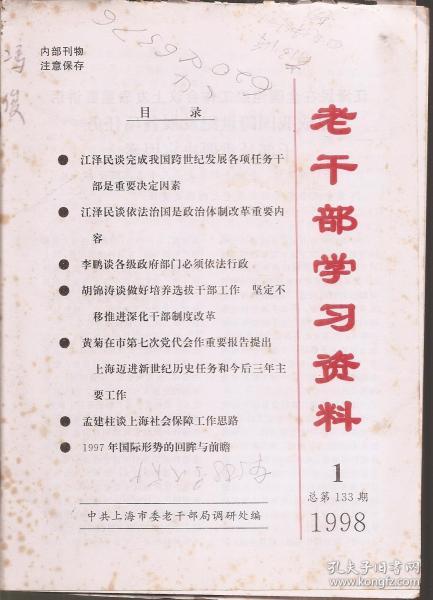 内部刊物
注意保存
冯俊
目 录
● 江泽民谈完成我国跨世纪发展各项任务干
部是重要决定因素
● 江泽民谈依法治国是政治体制改革重要内
容
● 李鹏谈各级政府部门必须依法行政
● 胡锦涛谈做好培养选拔干部工作 坚定不
移推进深化干部制度改革
● 黄菊在市第七次党代会作重要报告提出
上海迈进新世纪历史任务和今后三年主
要工作
● 孟建柱谈上海社会保障工作思路
● 1997年国际形势的回眸与前瞻
中共上海市委老干部局调研处编
老干部学习资料
1
总第133期
1998
孔夫子旧书网